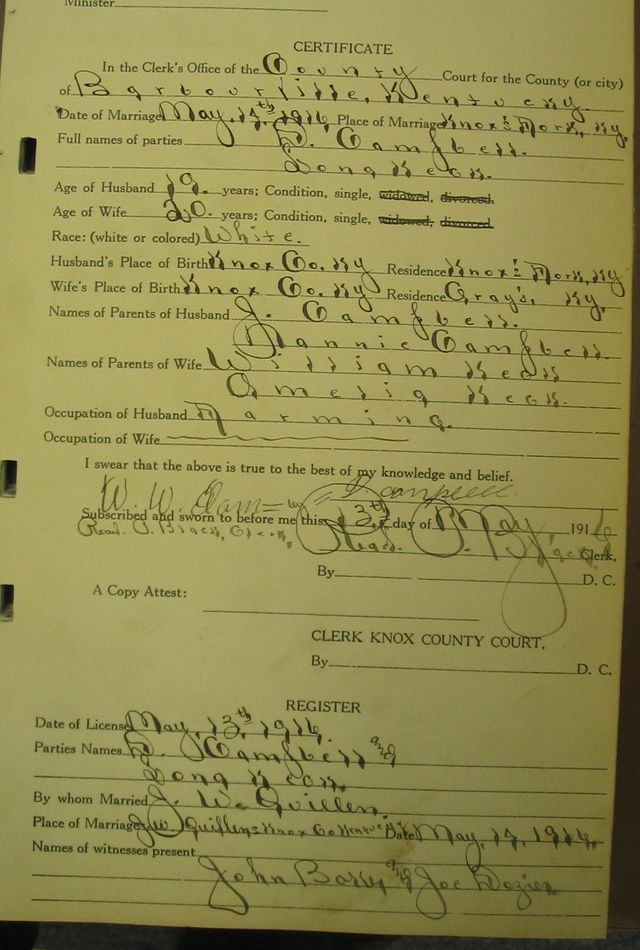 Minister
CERTIFICATE
In the Clerk's Office of the County Court for the County (or city)
of Barbourville, Kentucky.
Date of Marriage May, 14th 1916, Place of Marriage Knox's Fork, Ky.
Full names of parties D. Campbell.
Dona Keck.
Age of Husband 19. years; Condition, single, widowed, divorced
Age of Wife 20. years; Condition, single, widowed, divorced
Race: (white or colored) White.
Husband's Place of Birth Knox Co. Ky Residence Knox's Fork, Ky
Wife's Place of Birth Knox Co. Ky Residence Gray's, Ky.
Names of Parents of Husband J. Campbell.
Nannie Campbell.
Names of Parents of Wife William Keck
Amelia Keck.
Occupation of Husband Farming.
Occupation of Wife
I swear that the above is true to the best of my knowledge and belief.
W. W. by Campbell.
Subscribed and sworn to before me this 13th day of May, 1916
Read. P. Black, Clerk, Read. P. Black Clerk.
By D. C.
A Copy Attest:
CLERK KNOX COUNTY COURT.
By D. C.
REGISTER
Date of License May, 13th, 1916.
Parties Names D. Campbell and
Dona Keck.
By whom Married J. W. Guillen.
Place of Marriage J. W. Guillens Knox Co Date May, 14, 1916.
Names of witnesses present
John and Joe Dozier